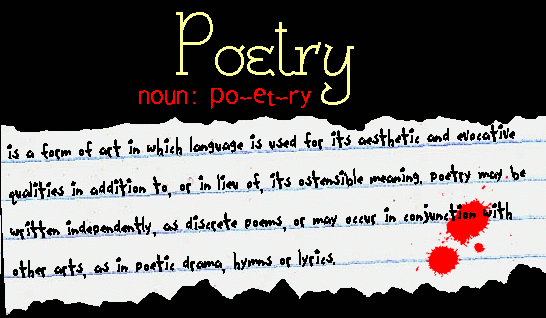 Poetry
noun: po-et-ry
is a form of art in which language is used for its aesthetic and evocative
qualities in addition to, or in lieu of, its ostensible meaning. poetry may be
written independently, as discrete poems, or may occur in conjunction with
other arts, as in poetic drama, hymns or lyrics.